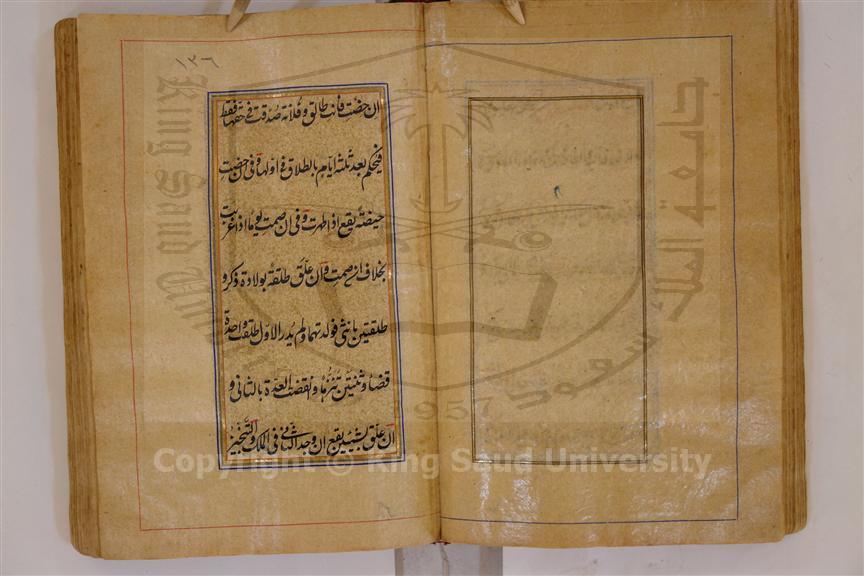 ١٣٦
ان حضت فانت طالق و فلانة صدقت فى حقها فقط
فيحكم بعد ثلثة ايام بالطلاق فى اولها و فى ان حضت
حيضة يقع اذا طهرت و فى ان صمت يوما اذا غربت
بخلاف ان صمت و ان علق طلقة بولادة ذكر و
طلقتين بانثى فولدتهما و لم يدر الاول طلقت واحدة
قضاء و ثنتين تنزها و انقضت العدة بالثانى و
ان علق بشيئين يقع ان وجد الثانى فى الملك و التنجيز
King Saud University
جامعة الملك سعود
1957
Copyright © King Saud University